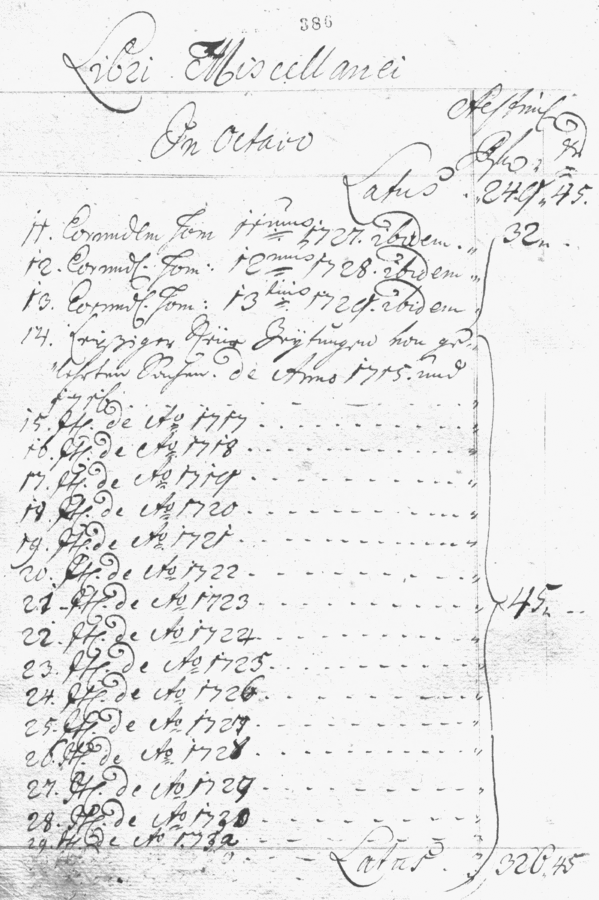 386
Libri Miscellanei
In Octavo
Latus. 249. 45.
11. Eorumdem Tom 11mus. 1727. ibidem. 32.
12. Eorumd. Tom: 12mus 1728. ibidem
13. Eorumd. Tom: 13tius 1729. ibidem
14. Leipziger Neue Zeytungen von ge-
lehrten Sachen. de Anno 1715. und
1716
15. It. de Ao 1717
16. It. de Ao 1718
17. It. de Ao 1719
18. It. de Ao 1720
19. It. de Ao 1721
20. It. de Ao 1722
21. It. de Ao 1723 45.
22. It. de Ao 1724
23. It. de Ao 1725
24. It. de Ao 1726
25. It. de Ao 1727
26. It. de Ao 1728
27. It. de Ao 1729
28. It. de Ao 1730
29. It. de Ao
Latus. 326. 45